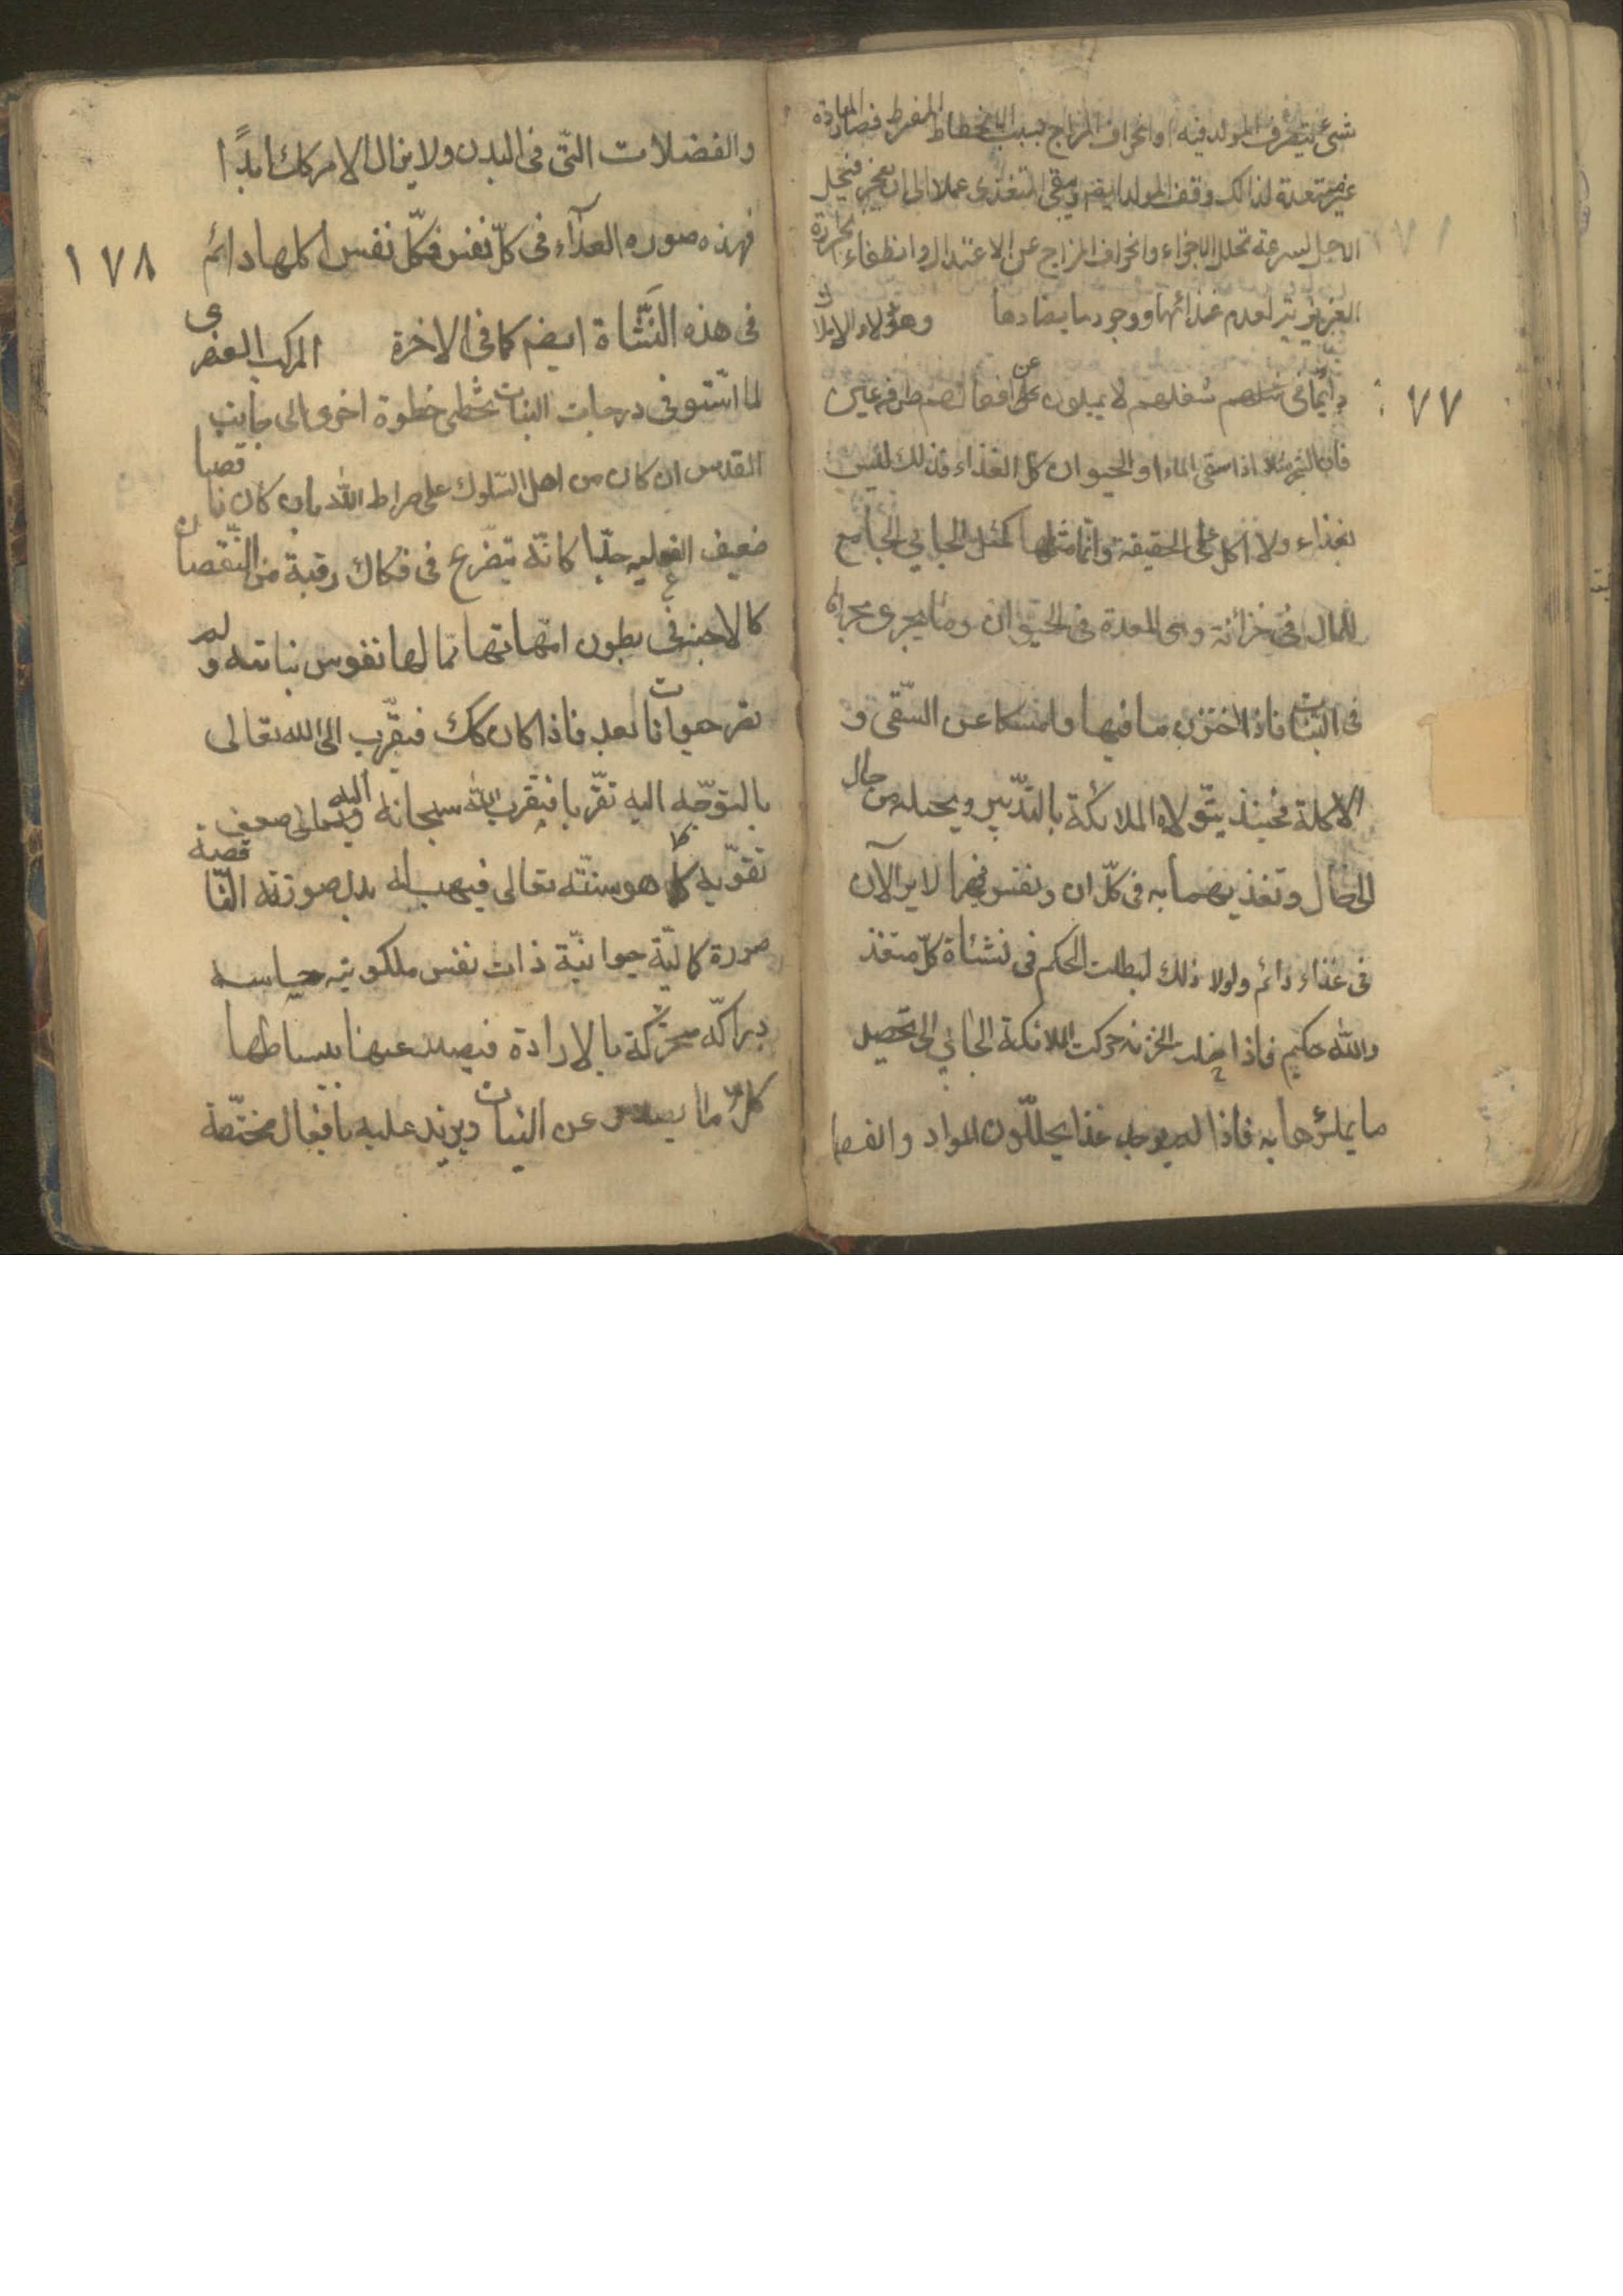 شیء لیتصرف المولد فیه او انحراف المزاج بسبب الانحطاط المفرط فصار المادة
غیر مستعدة لذالک وقف المولد ایضم ویبقی المتغذی عملا الی ان یعجز فیحل
الاجل لسرعة تحلل الاجزاء وانحراف المزاج عن الاعتدال وانطفاء الحرارة
الغریزیة لعدم غذائها ووجود ما یضادها وهؤلاء الاملاک
دایما فی شغلهم لا یمیلون عن افعالهم طرفة عین
١٧٧
فان الشجر مثلا اذا سقی الماء او الحیوان کل الغذاء فذلک لیس
بغذاء ولا اکل علی الحقیقة وانما مثلها کمثل الجابی الجامع
للمال فی خزائنه وهی المعدة فی الحیوان وما یجری مجراها
فی النبات فاذا اختزن ما فیها وامسکا عن السقی و
الاکلة فحینئذ یتولاه الملائکة بالتدبیر ویحیله من حال
الی حال وتغذیهما به فی کل ان ونفس فهما لا یزالان
فی غذاء دائم ولولا ذلک لبطلت الحکم فی نشئاة کل متغذ
والله حکیم فاذا خلت الخزینه حرکت الملائکة الجابی الی تحصیل
ما یملؤها به فاذا لم یوجد غذا یحللون المواد والفضلا
والفضلات التی فی البدن ولا یزال الامر کک ابدًا
فهذه صوره الغذآء فی کل نفس فکل نفس اکلها دائم
١٧٨
فی هذه النشاة ایضم کما فی الاخرة المرکب العنصری
لما استوفی درجات النبات تخطی خطوة اخری الی جانب
القدس ان کان من اهل السلوک علی صراط الله بان کان ناقصا
ضعیف الفعلیه جدّا کانّه یتضرع فی فکاک رقبة من النقصان
کالاجنه فی بطون امهاتها مما لها نفوس نباتیه ولم
تصر حیوانات بعد فاذا کان کک فیقرب الی الله تعالی
بالتوجه الیه تقربا فیقرب الله سبحانه الیه
تقویه کما هو سنته تعالی فیهب له بدل صورته الناقصة
صورة کمالیّة حیوانیّة ذات نفس ملکوتیه حساسه
دراکه متحرکة بالارادة فیصدر عنها ببساطتها
کل ما یصدر عن النبات ویزید علیه بافعال مختصة